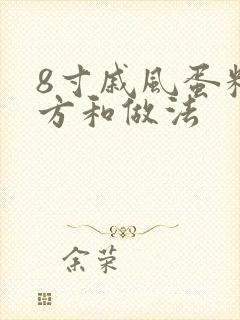 8寸戚風蛋糕
方和做法
余荣